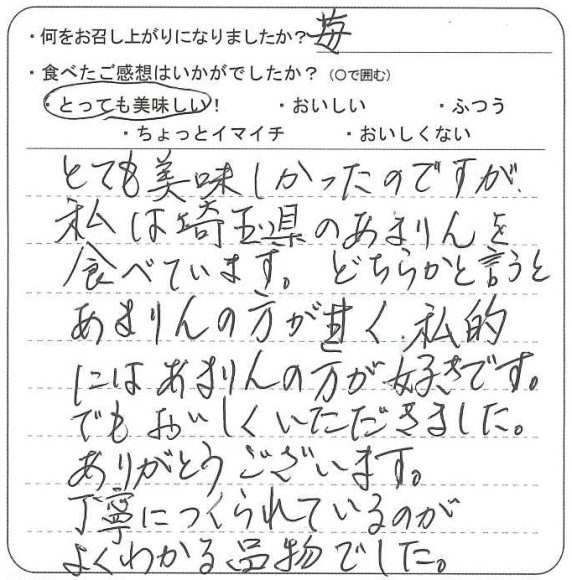 ・何をお召し上がりになりましたか？苺
・食べたご感想はいかがでしたか？（○で囲む）
・とっても美味しい！ ・おいしい ・ふつう
・ちょっとイマイチ ・おいしくない
とても美味しかったのですが、
私は埼玉県のあまりんを
食べています。どちらかと言うと
あまりんの方が甘く、私的
にはあまりんの方が好きです。
でもおいしくいただきました。
ありがとうございます。
丁寧につくられているのが
よくわかる品物でした。